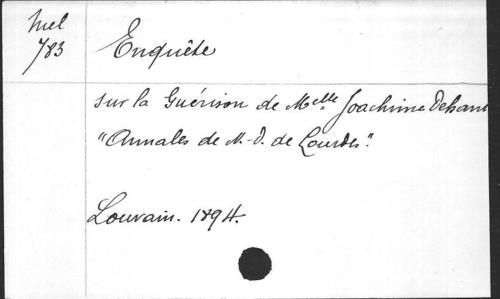 Mel
783
Enquête
sur la Guérison de Melle Joachime Dehant
"Annales de N.-D. de Lourdes".
Louvain. 1894.